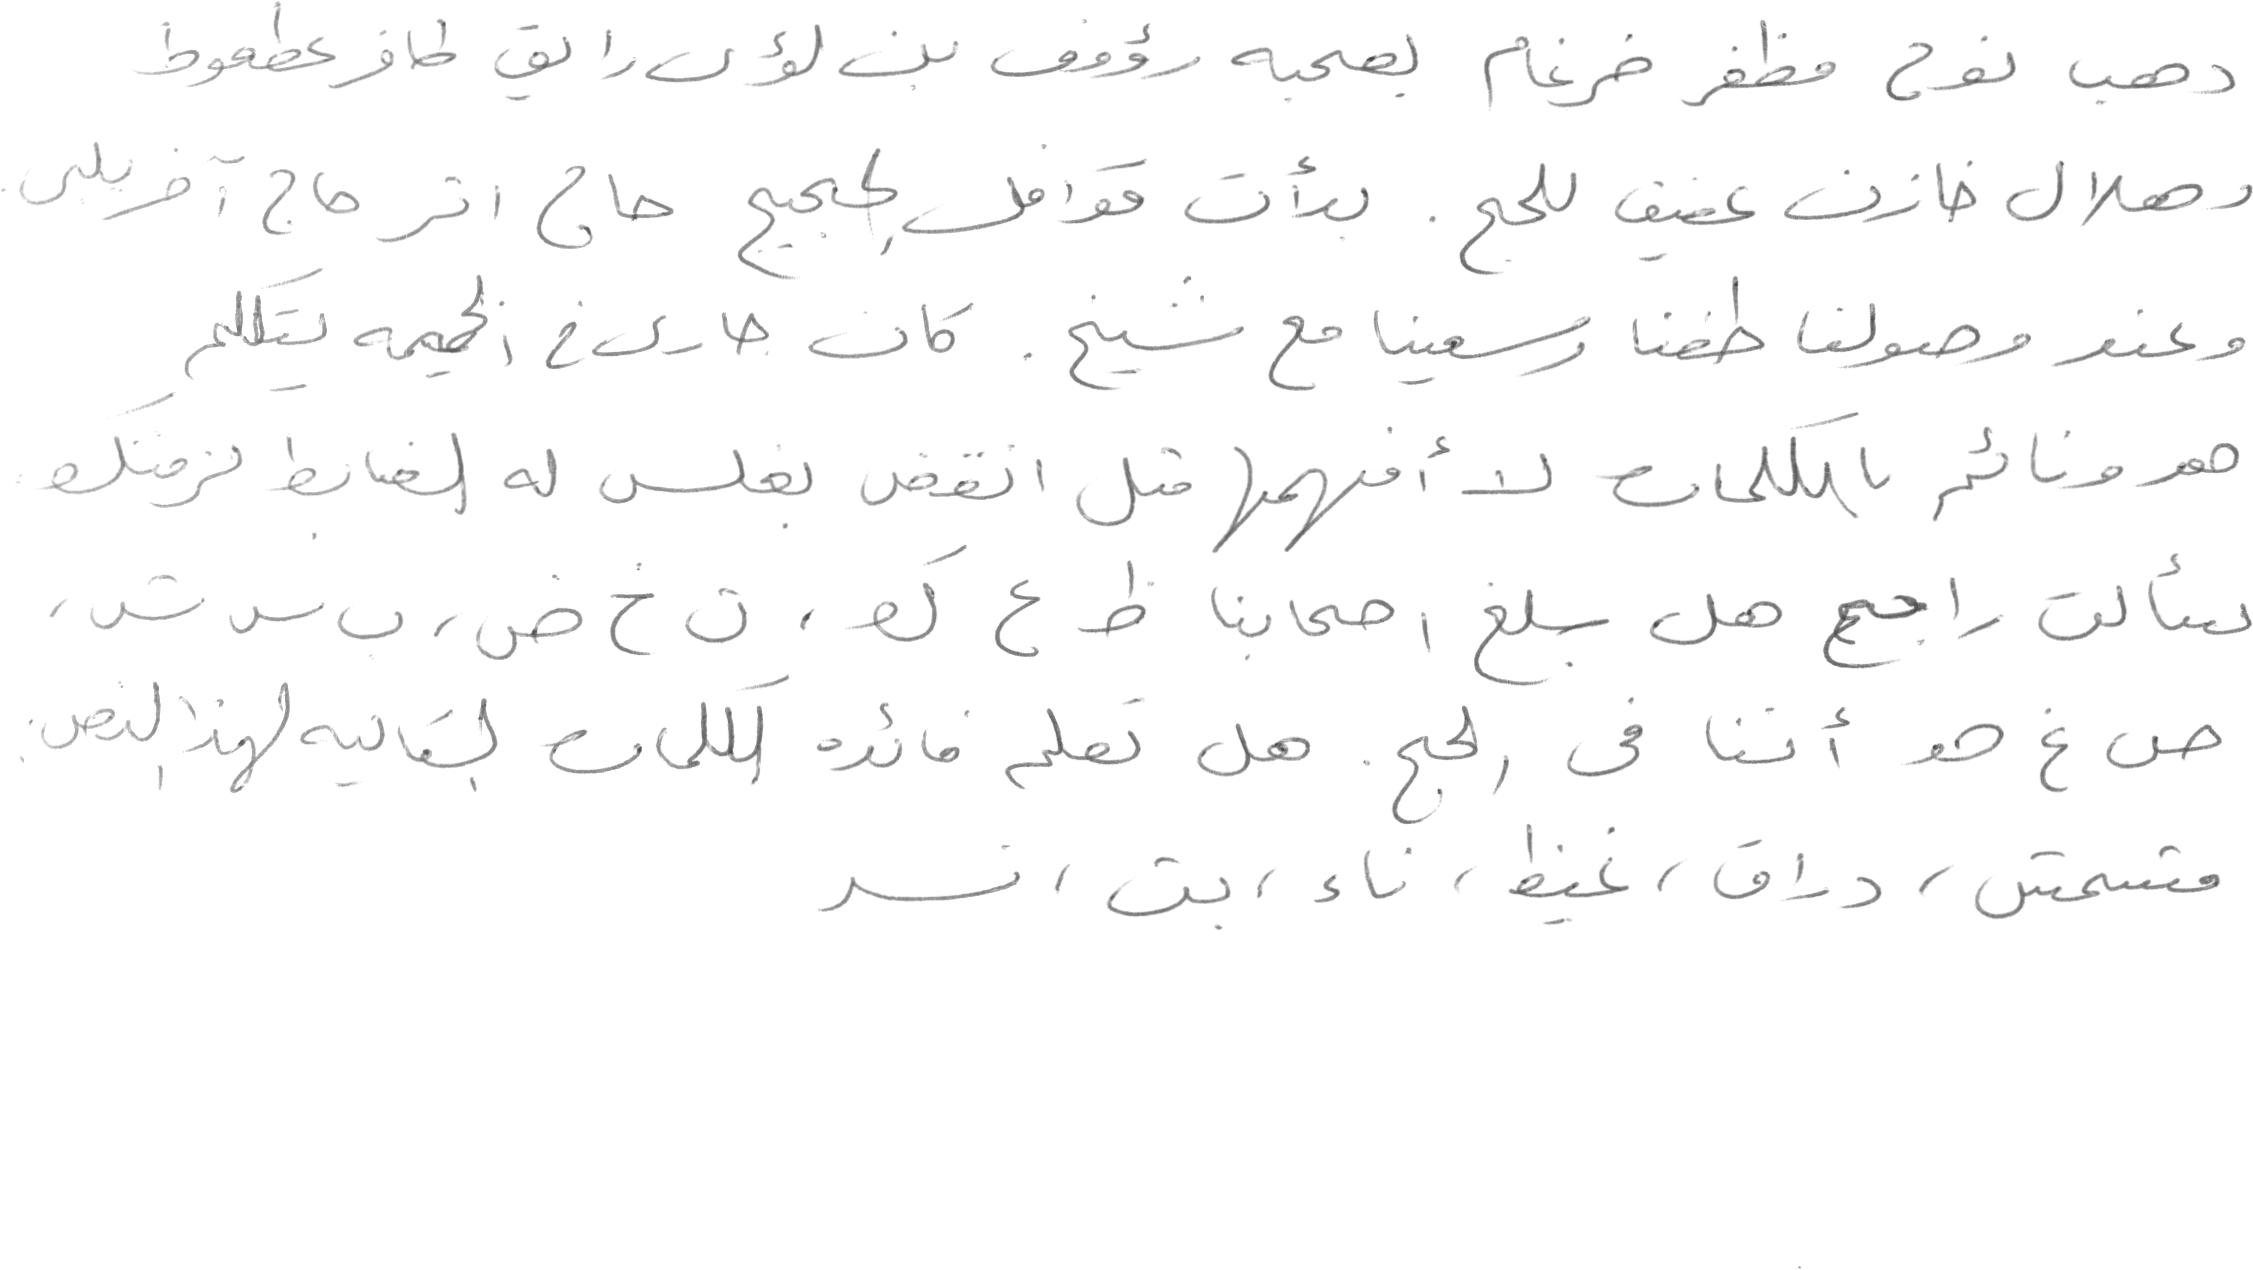 ذهب نوح مظفر ضرغام بصحبه رؤوف بن لؤى رايق ظافر عطعوط
وهلال خازن عفيف للحج. بدأت قوافل الحجيج حاج اثر حاج آخر يلى.
وعند وصولنا طفنا وسعينا مع شيخ. كان جارى فى الخيمه يتكلم
هو ونائم بالكلمات لا أفهمها مثل انقض بغلس له الضابط نزمتك
سألت راجح هل بلغ اصحابنا ظ ع ك، ن خ ض، ب س ش،
ص غ هو أننا فى الحج. هل تعلم فائده الكلمات التاليه لهذا النص:
مشمش، دراق، غيظ، ناء، بث، نسر